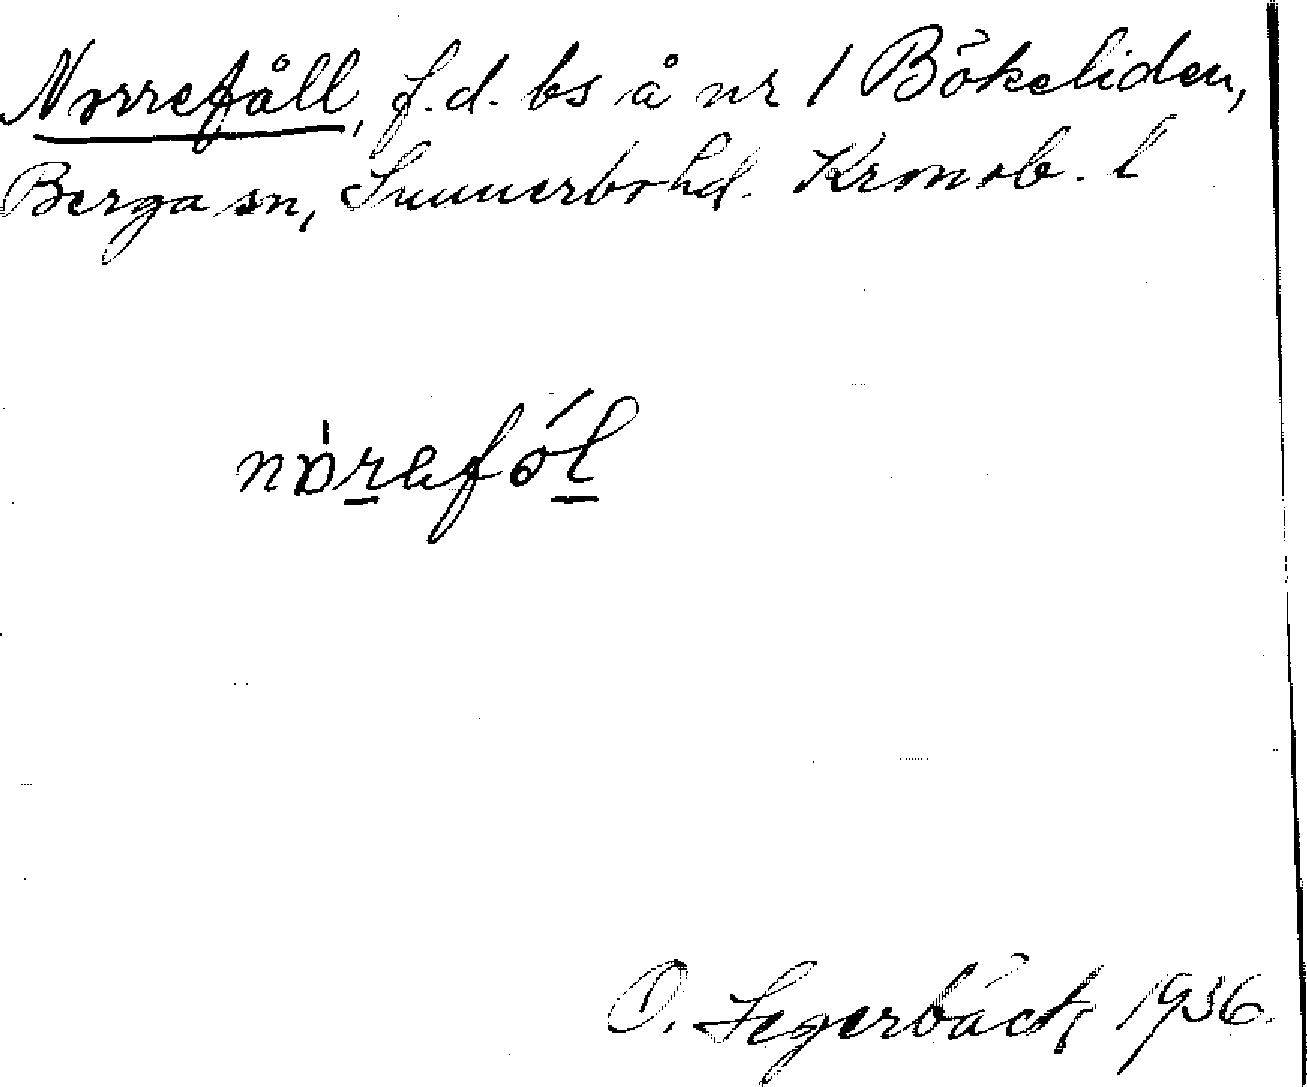 Norrefåll, f.d. bs å nr 1 Bökeliden,
Berga sn, Sunnerbo hd. Kronob. l
nòrefól
O. Segerbäck, 1936.